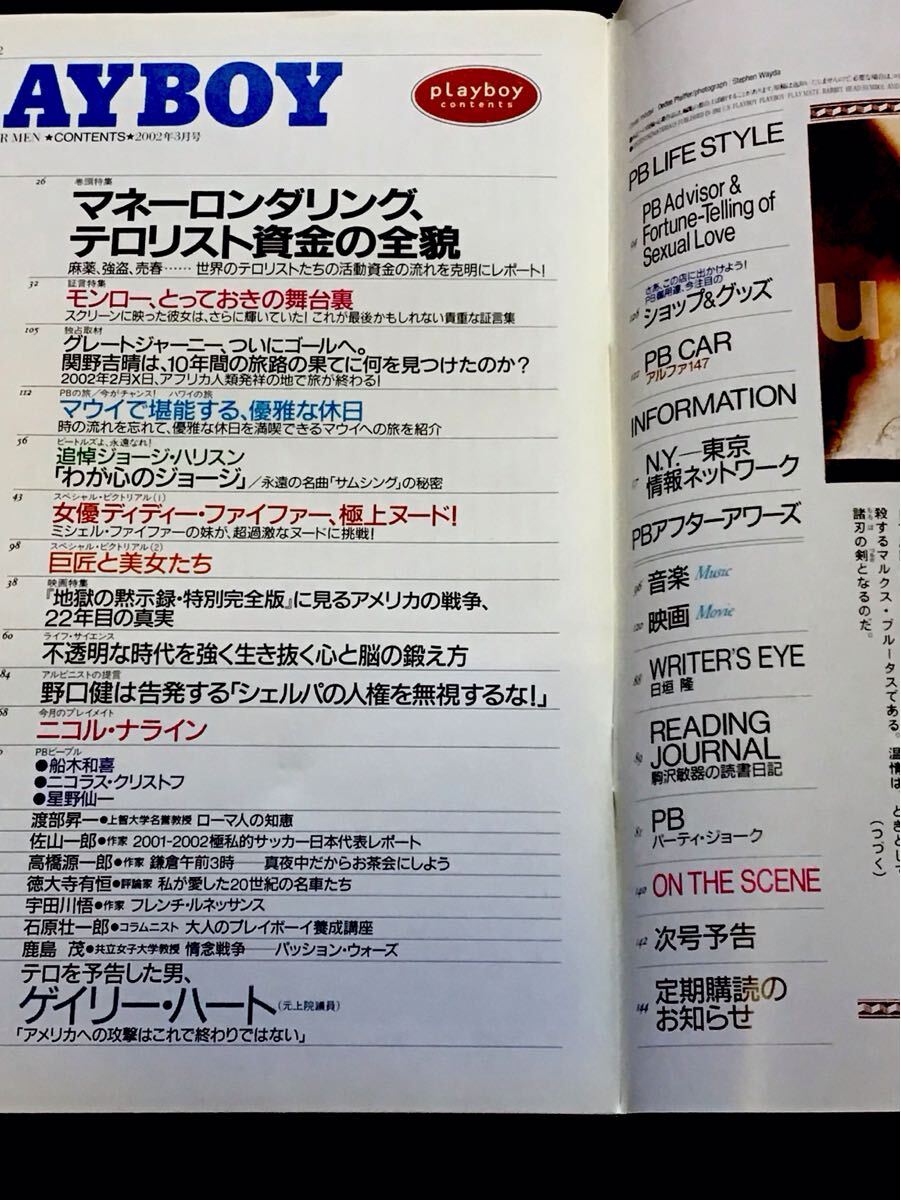 AYBOY
playboy
contents
R MEN ★CONTENTS★2002年3月号
26 巻頭特集
マネーロンダリング、
テロリスト資金の全貌
麻薬、強盗、売春…… 世界のテロリストたちの活動資金の流れを克明にレポート!
32 証言特集
モンロー、とっておきの舞台裏
スクリーンに映った彼女は、さらに輝いていた! これが最後かもしれない貴重な証言集
105 独占取材
グレートジャーニー、ついにゴールへ。
関野吉晴は、10年間の旅路の果てに何を見つけたのか?
2002年2月X日、アフリカ人類発祥の地で旅が終わる!
112 PBの旅/今がチャンス! ハワイの旅
マウイで堪能する、優雅な休日
時の流れを忘れて、優雅な休日を満喫できるマウイへの旅を紹介
56 ビートルズよ、永遠なれ!
追悼ジョージ・ハリスン
「わが心のジョージ」/永遠の名曲「サムシング」の秘密
43 スペシャル・ピクトリアル(1)
女優ディディー・ファイファー、極上ヌード!
ミシェル・ファイファーの妹が、超過激なヌードに挑戦!
98 スペシャル・ピクトリアル(2)
巨匠と美女たち
38 映画特集
『地獄の黙示録・特別完全版』に見るアメリカの戦争、
22年目の真実
60 ライフ・サイエンス
不透明な時代を強く生き抜く心と脳の鍛え方
84 アルピニストの提言
野口健は告発する「シェルパの人権を無視するな!」
68 今月のプレイメイト
ニコル・ナライン
PBピープル
●船木和喜
●ニコラス・クリストフ
●星野仙一
渡部昇一●上智大学名誉教授 ローマ人の知恵
佐山一郎●作家 2001-2002極私的サッカー日本代表レポート
高橋源一郎●作家 鎌倉午前3時――真夜中だからお茶会にしよう
徳大寺有恒●評論家 私が愛した20世紀の名車たち
宇田川悟●作家 フレンチ・ルネッサンス
石原壮一郎●コラムニスト 大人のプレイボーイ養成講座
鹿島 茂●共立女子大学教授 情念戦争――パッション・ウォーズ
テロを予告した男、
ゲイリー・ハート(元上院議員)
「アメリカへの攻撃はこれで終わりではない」
PB LIFE STYLE
PB Advisor &
Fortune-Telling of
Sexual Love
さあ、この店に出かけよう!
PB御用達、今注目の
ショップ&グッズ
PB CAR
アルファ147
INFORMATION
N.Y.―東京
情報ネットワーク
PBアフターアワーズ
音楽 Music
映画 Movie
88 WRITER'S EYE
日垣 隆
READING
JOURNAL
駒沢敏器の読書日記
PB
パーティ・ジョーク
140 ON THE SCENE
142 次号予告
144 定期購読の
お知らせ
u
殺するマルクス・ブルータスである。
諸刃の剣となるのだ。
もろは つるぎ
(つづく)